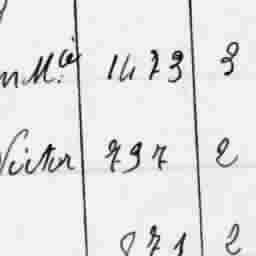 nM.cié 1473 3
Victor 797 2
871 2